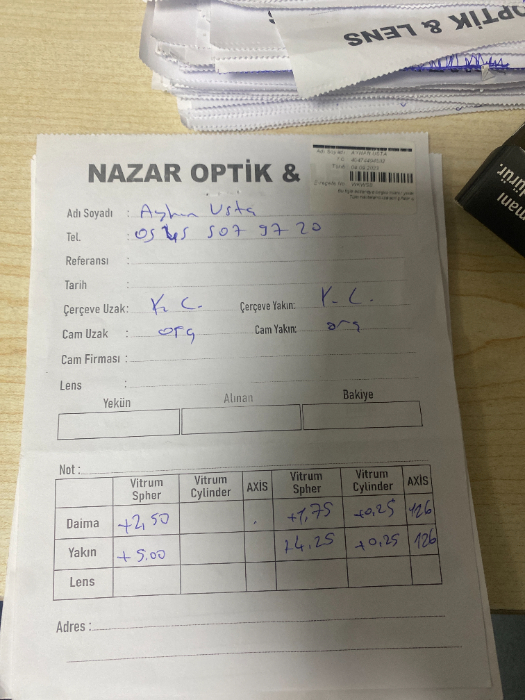 OPTİK & LENS
NAZAR OPTİK &
Adı Soyadı : Ayhan Usta
Tel. : 0545 507 97 20
Referansı :
Tarih :
Çerçeve Uzak: K. C. Çerçeve Yakın: K. C.
Cam Uzak : org Cam Yakın: org
Cam Firması :
Lens :
Yekün Alınan Bakiye
Not :
Vitrum Spher Vitrum Cylinder AXİS Vitrum Spher Vitrum Cylinder AXİS
Daima +2,50 +1,75 +0,25 126
Yakın +5.00 +4.25 +0,25 126
Lens
Adres :